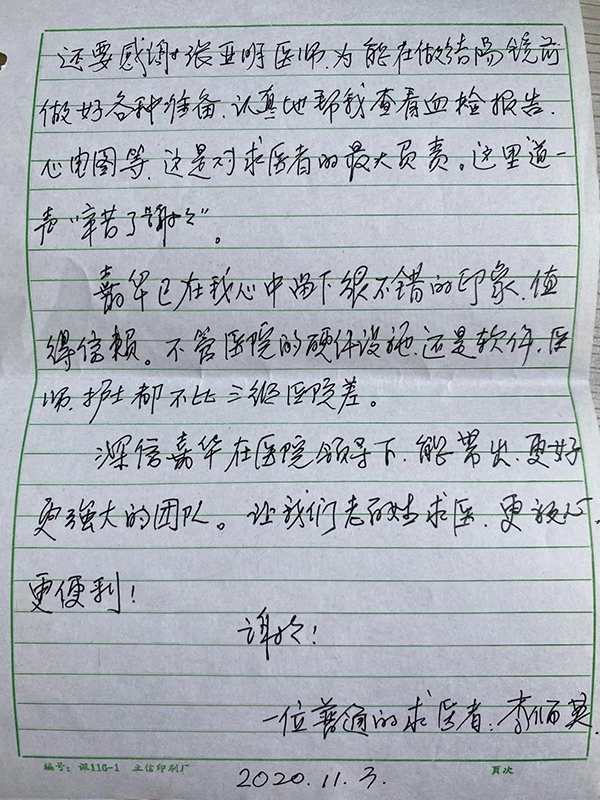 还要感谢张亚明医师.为能在做结肠镜前
做好各种准备.认真地帮我查看血检报告.
心电图等.这是对求医者的最大负责。这里道一
声“辛苦了谢谢”。
嘉华已在我心中留下很不错的印象.值
得信賴。不管医院的硬件设施.还是软件.医
师.护士都不比三级医院差。
深信嘉华在医院领导下.能带出.更好
更强大的团队。让我们老百姓求医.更放心.
更便利!
谢谢!
一位普通的求医者:李 英
编号:课116-1 立信印刷厂 页次
2020.11.3.